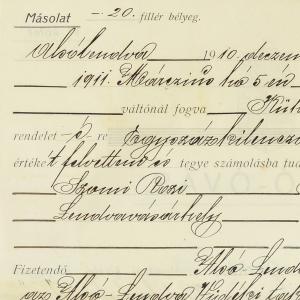 Másolat -. 20. fillér bélyeg.
Alsólendva 1910. deczem
1911. Márczius hó 5 én
váltónál fogva Küh
rendelet -é- re Egyszázkilencz
értéket felvettnek és tegye számolásba tud
Szomi Rozi
Lendvavásárhely
Fizetendő Alsó-Lend
az Alsó-Lendva Vidéki tak